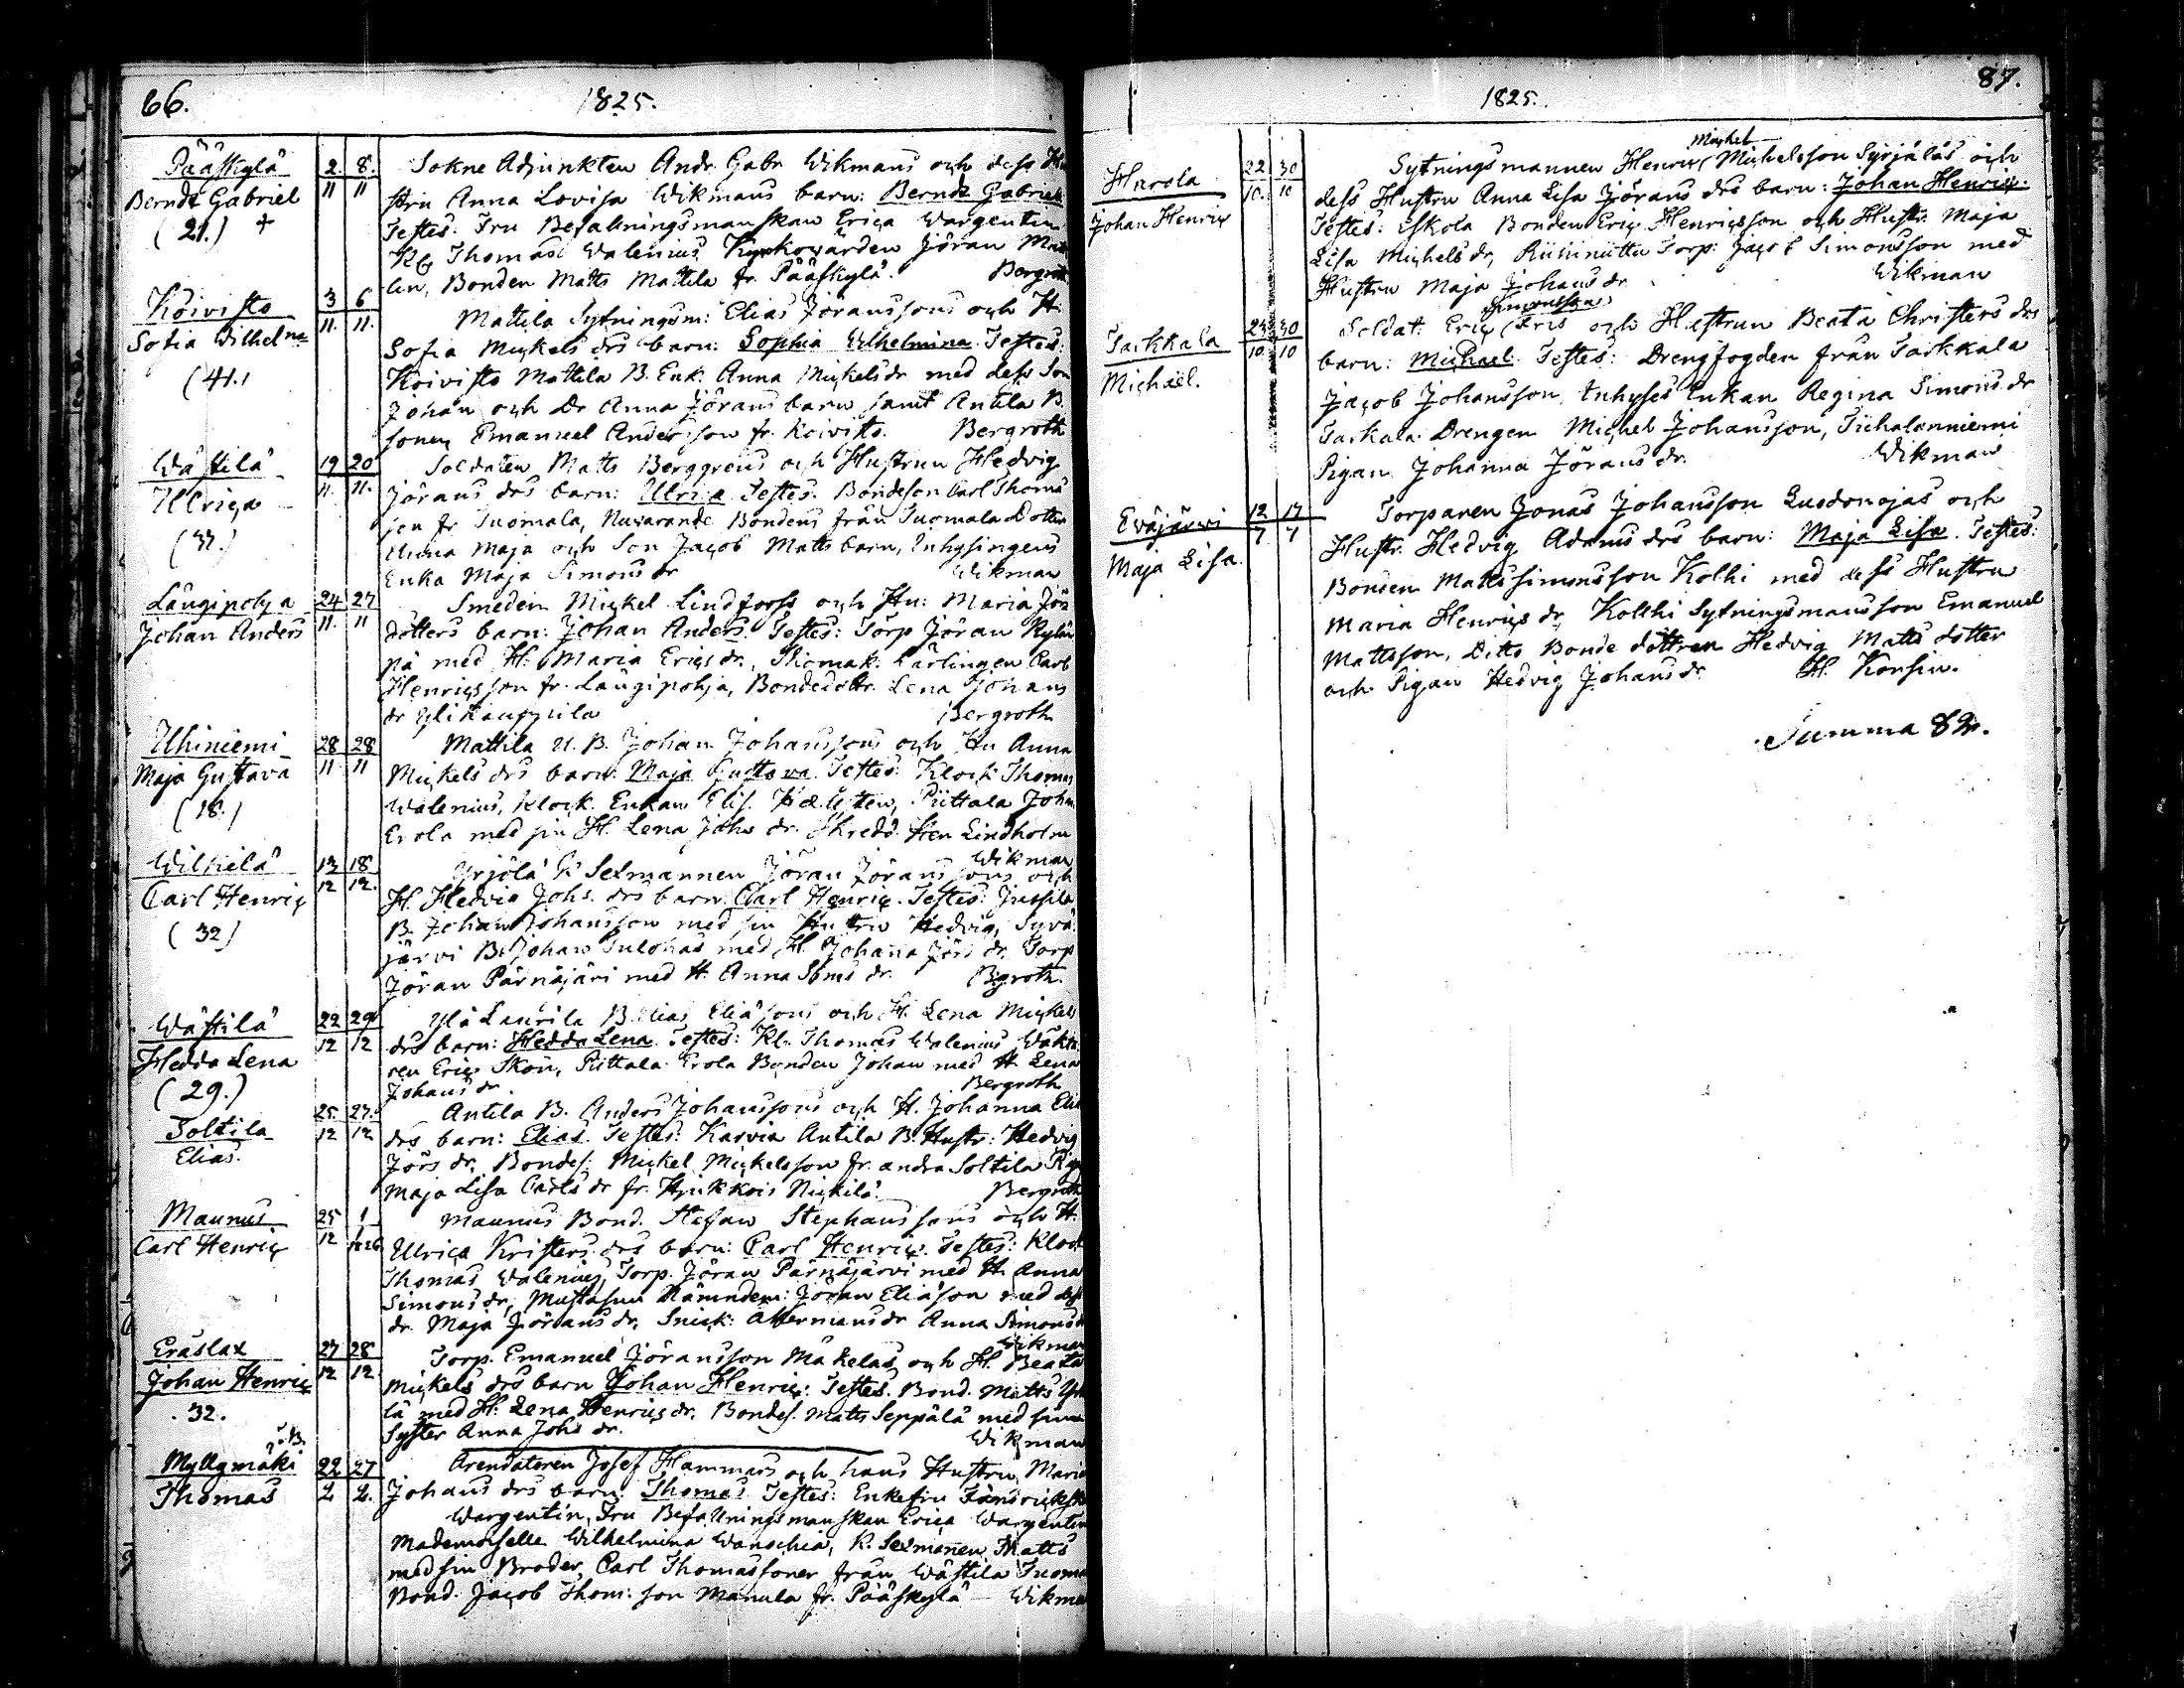 66.
1825.
Pääskylä 2. 8. Sokne Adjunkten Andr. Gabr. Wikmans och dess Hu
Berndt Gabriel 11 11 stru Anna Lovisa Wikmans barn: Berndt Gabriel
(21.) + Testes: Fru Befalningsmanskan Erica Wargentin
Thomas Walenius, Kyrkowärden Jöran Mat
Bonden Matts Mattila fr. Pääskylä. Bergroth
Koivisto 3 6 Mattila Sytningsm: Elias Jöranssons och H.
Sofia Wilhelma 11. 11. Sofia Mickels drs barn: Sophia Wilhelmina. Testes:
(41.) Koivisto Mattila B. Enk. Anna Mickelsdr med dess Son
Johan och Dr Anna Jörans barn samt Antila B.
sonen Emanuel Andersson fr. Koivisto. Bergroth
Wästilä 19 20 Soldaten Matts Berggrens och Hustrun Hedvig
Ulrica 11. 11. Jörans drs barn: Ulrica. Testes. Bondeson Carl Thoms
son fr Tuomala, Nuvarande Bondens från Tuomala Dotter
Anna Maja och Son Jacob Matts barn, Inhysingens
Enka Maja Simons dr Wikman
Längipohja 24 27 Smeden Mickel Lindforss och Hu: Maria Jör
Johan Anders 11. 11 dotters barn: Johan Anders. Testes: Torp Jöran Rylän
pä med H. Maria Erics dr, Thomak: Lärlingen Carl
Henricsson fr. Längipohja, Bondedotr. Lena Johans
dr Bergroth
Uhiniemi 28 28 Mattila U. B. Johan Johanssons och Hu Anna
Maja Gustava 11 11 Mickels drs barn: Maja Gustava. Testes: Klock Thomas
(18.) Walenius, Klock. Enkan Elis. Piittala Johan
Erola med sin H. Lena Johs dr. Skredd. Lindholm
Wikman
Wilkilä 13 18. Yrjölä K. Sexmannen Jöran Jöranssons och
Carl Henric 12 12. H. Hedvig Johs. drs barn: Carl Henric. Testes: Jussila
(32) B. Johan Johansson med sin Hustru Hedvig, Syvä
järvi B. Johan Tulohas med H. Johana Jörs dr, Torp
Jöran Pärnäjäri med H. Anna Sims dr. Bgroth.
Wästilä 22 29 Ylä Laurila B. Elias Eliäsons och H. Lena Mickels
Hedda Lena 12 12 drs barn: Hedda Lena. Testes: Kl. Thomas Walenius, Wäkta
(29.) ren Eric Skön, Piittala Erola Bonden Johan med H. Lena
Johans dr Bergroth
25. 27. Antila B. Anders Johanssons och H. Johanna Elia
Soltila 12 12 drs barn: Elias. Testes: Karvia Antila B. Hustr: Hedvig
Elias. Jörs dr, Bondes. Mickel Mickelsson fr. andra Soltila Pigan
Maja Lisa Carls dr fr. Bergroth
Maunus 25 1 Maunus Bond. Stefan Stephanssons och H.
Carl Henric 12 Ulrica Kristers drs barn: Carl Henric. Testes: Klock
Thomas Walenius, Torp. Jöran Pärnäjärvi med H. Anna
Simons dr, Mustasuu Nämndem: Jöran Eliäson med dess
dr. Maja Jörans dr, Snick: Åkermans dr Anna Simons dr
Wikman
Eräslax 27 28 Torp. Emanuel Jöransson Mäkeläs och H. Beata
Johan Henric 12 12 Mickels drs barn Johan Henric. Testes. Bond. Matts
32. lä med H. Lena Henrics dr, Bondes. Matts Seppälä med sin
Syster Anna Johs dr. Wikman
Myllymäki 22 27 Arendatoren Josef Hammars och hans Hustru Maria
Thomas 2 2. Johans drs barn: Thomas. Testes: Enkefru
Wargentin, Fru Befallningsmanskan Erica Wargentin
Mademoiselle Wilhelmina K. Sexmannen Matts
med sin Broder, Carl Thomassoner från Wästila Tuoma
Bond. Jacob Thom: son Manula fr. Pääskylä Wikman
87.
1825.
Michel
Harola 22 30 Sytningsmannen Henric Michelsson Syrjäläs och
Johan Henric 10. 10 dess Hustru Anna Lisa Jörans drs barn: Johan Henric.
Testes: Eskola Bonden Eric Henricsson och Hustr. Maja
Lisa Michels dr, Torp: Jacob Simonsson med
Hustru Maja Johans dr Wikman
Simonssons
Sarkkala 23 30 Soldat: Eric Fris och Hustrun Beata Christers drs
Michaël. 10. 10 barn: Michael. Testes: Drengfogden från Sarkkala
Jacob Johansson, Inhyses Enkan Regina Simons dr
Sarkala. Drengen Michel Johansson, Tiihalanniemi
Pigan Johanna Jörans dr. Wikman
Eväjärvi 12 17 Torparen Jonas Johansson Lusdonojas och
Maja Lisa. 7 7 Hustr. Hedvig Adams drs barn: Maja Lisa. Testes:
Bonden Matts Simonsson Kolhi med dess Hustru
Maria Henrics dr, Kollhi Sytningsmansson Emanuel
Mattsson, Ditto Bonde dottren Hedvig Matts dotter
och Pigan Hedvig Johans dr. H. Konsin.
Summa 82.